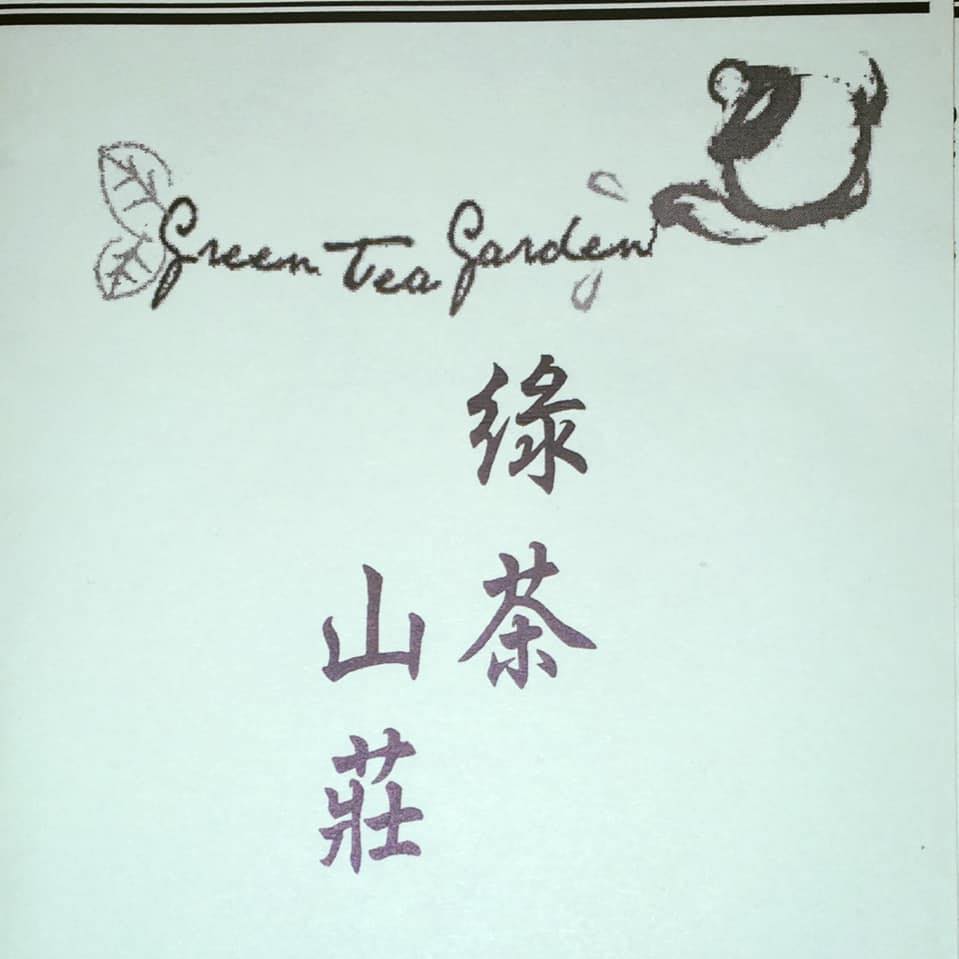 Green Tea Garden
綠茶
山莊